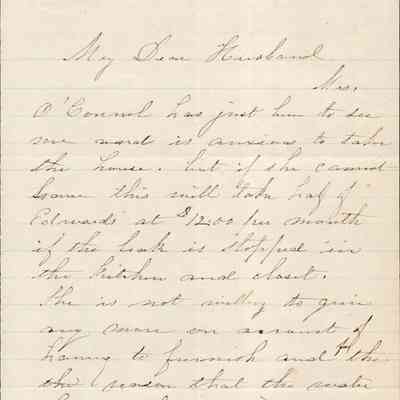 My Dear Husband
Mrs.
O'Connel has just been to see
me and is anxious to take
the house. but if she cannot
have this will take half of
Edwards at $12.00 per month
if the leak is stopped in
the kitchen and closet.
She is not willing to give
any more on account of
having to furnish and the
the reason that the water